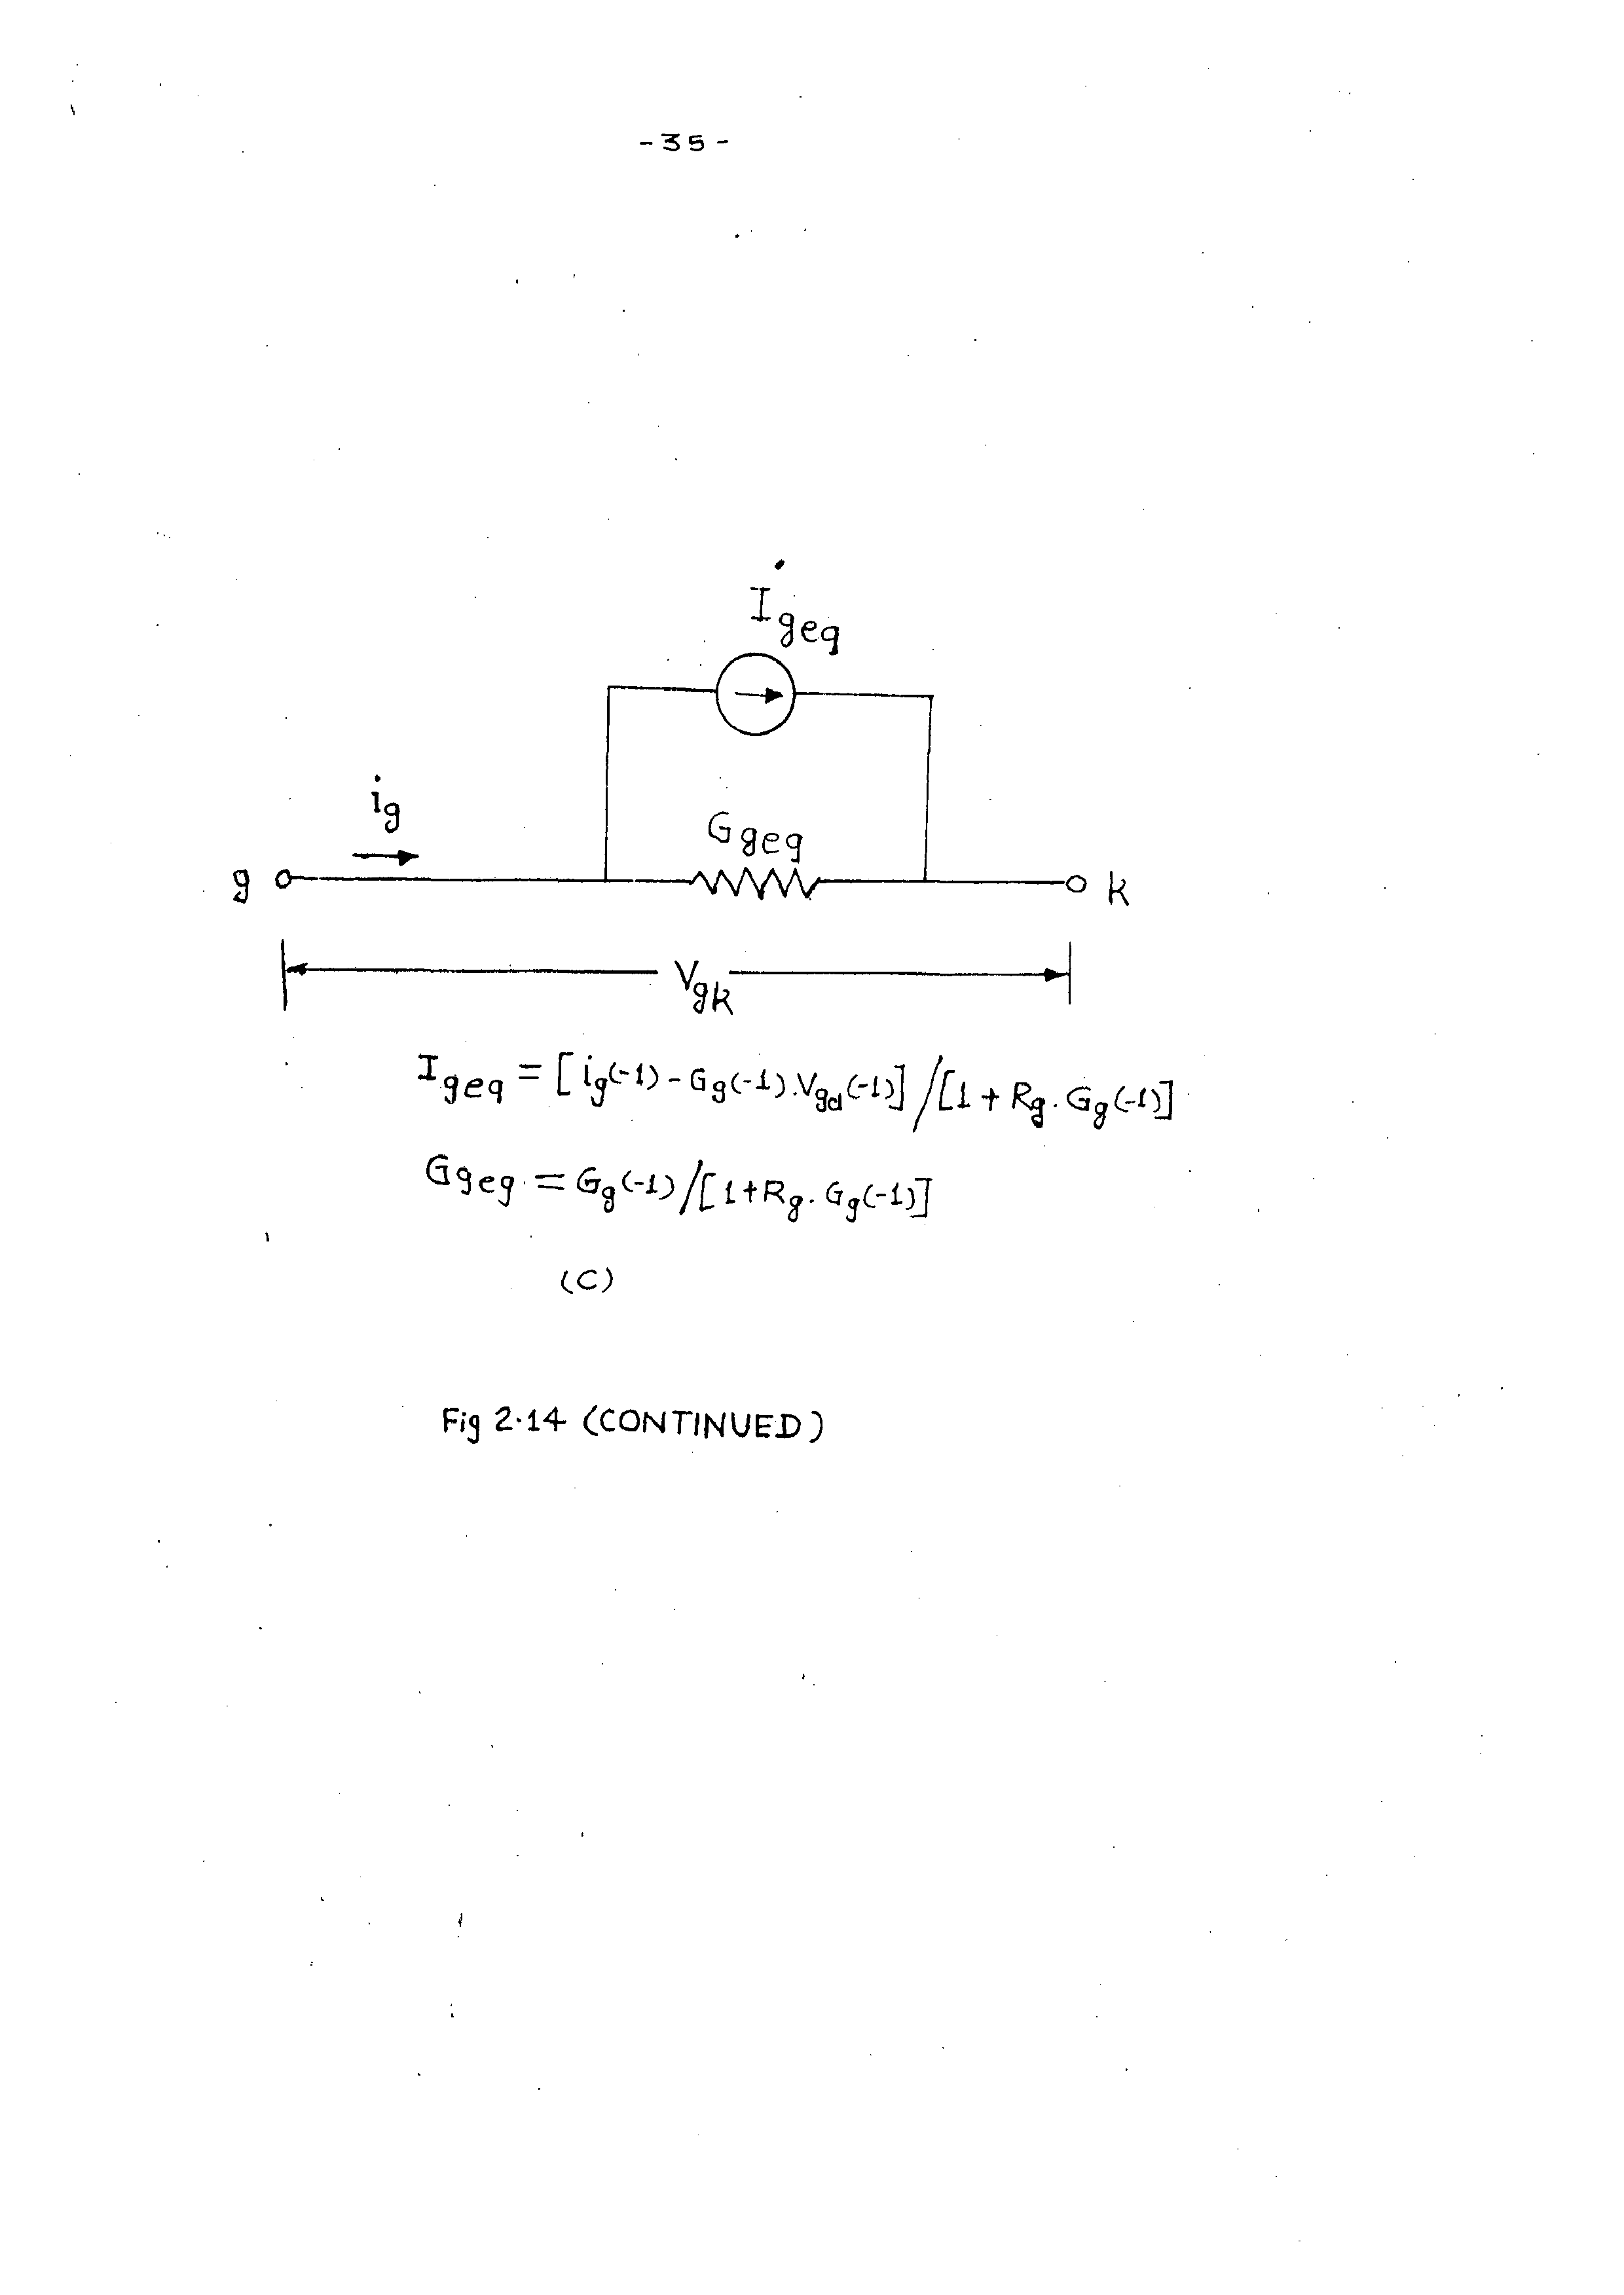 -35-
I geq
ig
G geq
g
k
Vgk
I geq = [ig(-1) - Gg(-1).Vgd(-1)] / [1 + Rg. Gg(-1)]
G geq = Gg(-1) / [1+Rg. Gg(-1)]
(C)
Fig 2.14 (CONTINUED)